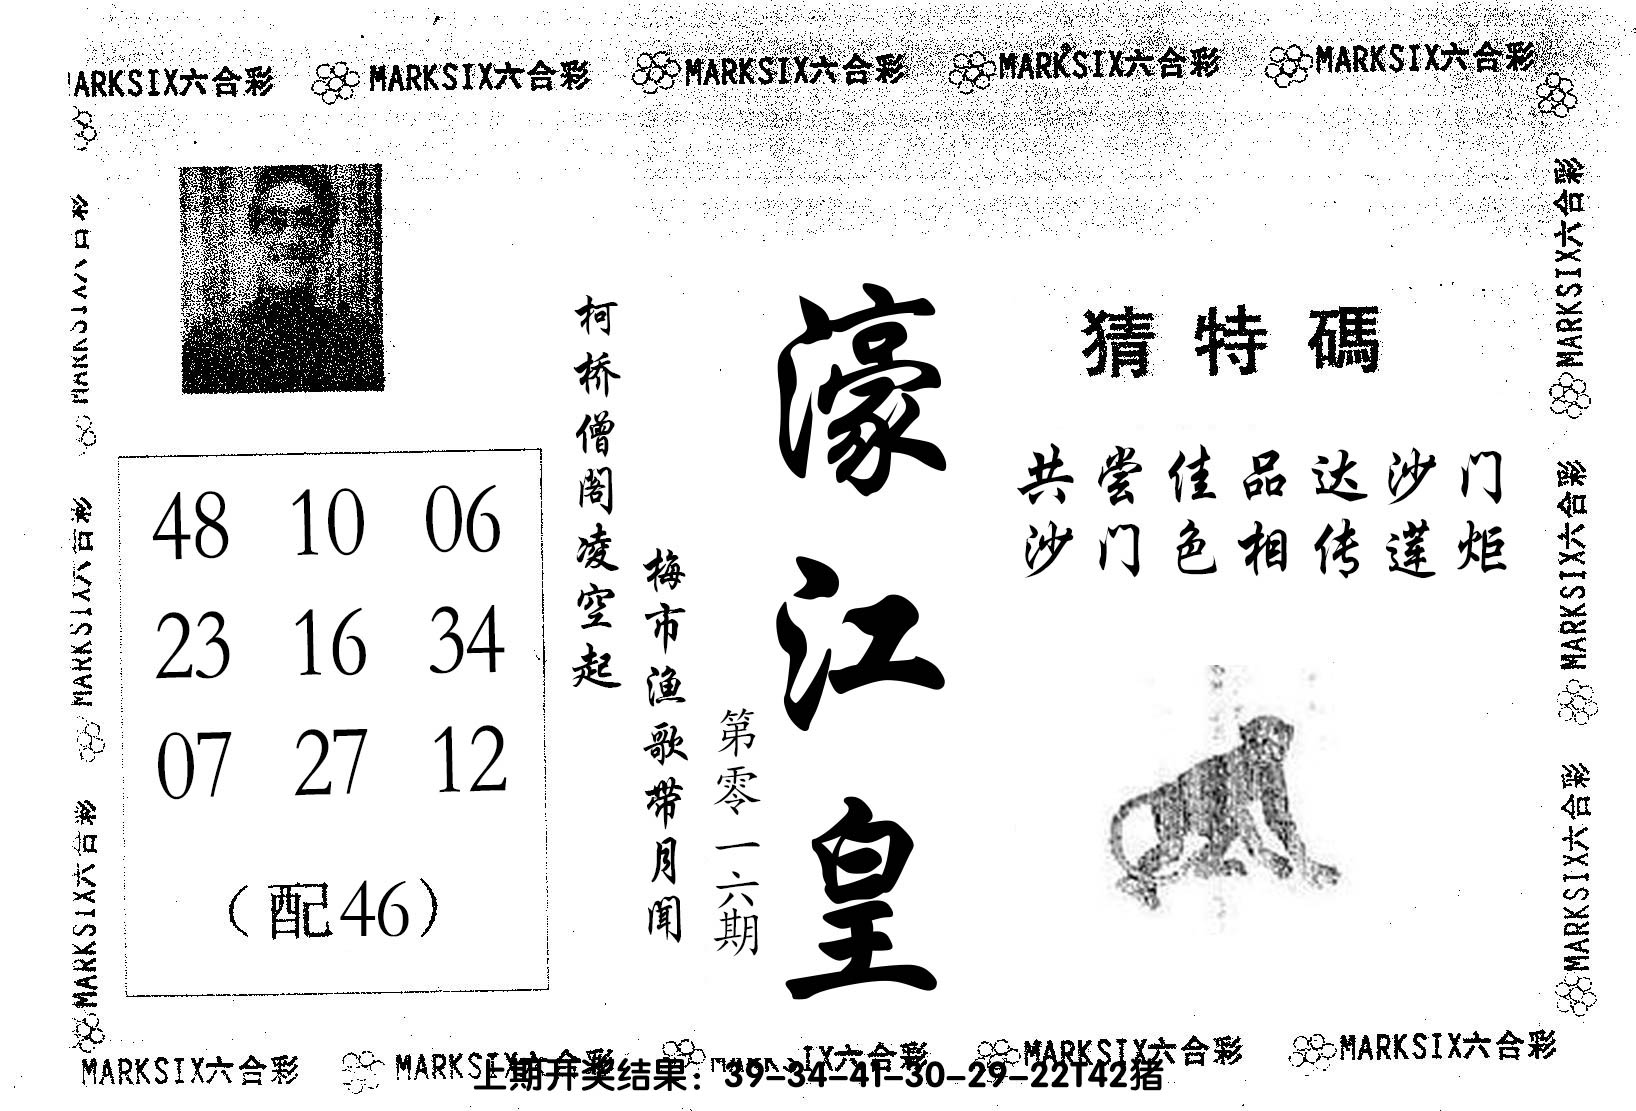 MARKSIX六合彩 MARKSIX六合彩 MARKSIX六合彩 MARKSIX六合彩 MARKSIX六合彩
猜特碼
共尝佳品达沙门
沙门色相传莲炬
濠江皇
第零一六期
梅市渔歌带月闻
柯桥僧阁凌空起
48 10 06
23 16 34
07 27 12
（配46）
MARKSIX六合彩
MARKSIX六合彩
MARKSIX六合彩
MARKSIX六合彩
MARKSIX六合彩
MARKSIX六合彩
MARKSIX六合彩 MARKSIX六合彩 MARKSIX六合彩 MARKSIX六合彩 MARKSIX六合彩
上期开奖结果：39-34-41-30-29-22T42猪